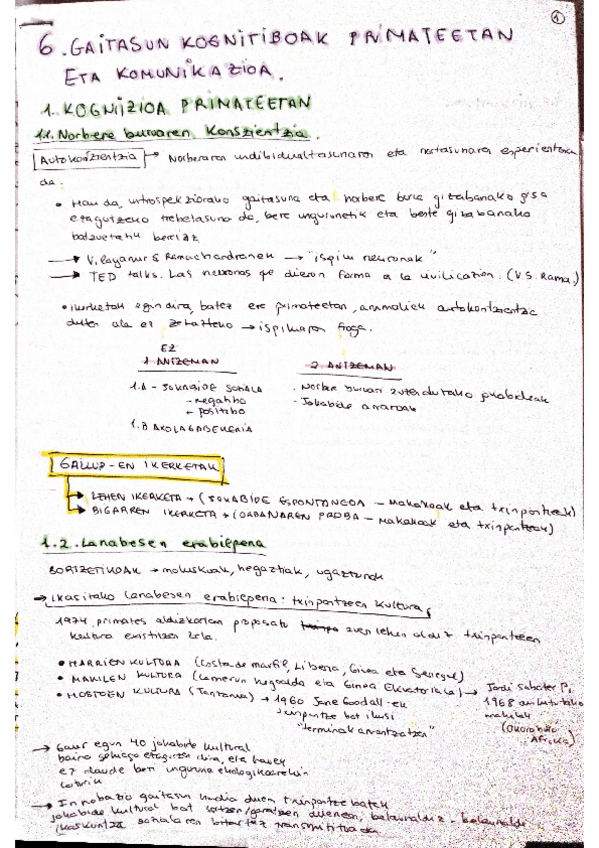 1
6. GAITASUN KOGNITIBOAK PRIMATEETAN
ETA KOMUNIKAZIOA.
1. KOGNIZIOA PRIMATEETAN
1.1. Norbere buruaren Kontzientzia.
Autokontzientzia → Norberaren indibidualtasunaren eta nortasunaren esperientzia
da.
• Hau da, introspekziorako gaitasuna eta norbere burua gizabanako gisa
ezagutzeko trebetasuna da, bere ingurunetik eta beste gizabanako
batzuetatik bereiz.
→ Vilayanur S Ramachandranek → "ispilu neuronak"
→ TED talks. Las neuronas que dieron forma a la civilización. (V.S. Rama.)
• Ikerketak egin dira, batez ere primateetan, animaliek autokontzientzia
duten ala ez zehazteko → ispiluaren froga.
EZ
1 ANTZEMAN
2 ANTZEMAN
1.A - JOKABIDE SOZIALA
- negatibo
- positibo
1.B AXOLAGABEKERIA
. Norbere buruari zuzendutako jokabideak
- Jokabide arraroak
GALLUP-EN IKERKETAK
→ LEHEN IKERKETA → (JOKABIDE ESPONTANEOA - Makakoak eta txinpantzeak)
→ BIGARREN IKERKETA → (ORBANAREN PROBA - makakoak eta txinpantzeak)
1.2. Lanabesen erabilpena
→ moluskuak, hegaztiak, ugaztunak
→ Ikasitako lanabesen erabilpena: txinpantzeen kultura
1974, primates aldizkarian proposatu zuen lehen aldiz txinpantzeen
kultura existitzen zela.
• HARRIEN KULTURA (Costa de marfil, Liberia, Ginea eta Senegal)
• MAKILEN KULTURA (Kamerun hegoaldea eta Ginea Ekuatoriala) → Jordi Sabater Pi,
• HOSTOEN KULTURA (Tanzania) → 1960 Jane Goodall-ek
txinpantze bat ikusi
"termitak arrantzatzen"
1968
makilak
Afrika)
→ Gaur egun 40 jokabide kultural
baino gehiago ezagutzen dira, eta hauek
ez daude beti ingurune ekologikoarekin
loturik
→ Innobazio gaitasun handia duen txinpantze batek
jokabide kultural bat sortzen/garatzen duenean, belaunaldiz-belaunaldi
ikaskuntza sozialaren bitartez transmititzen da